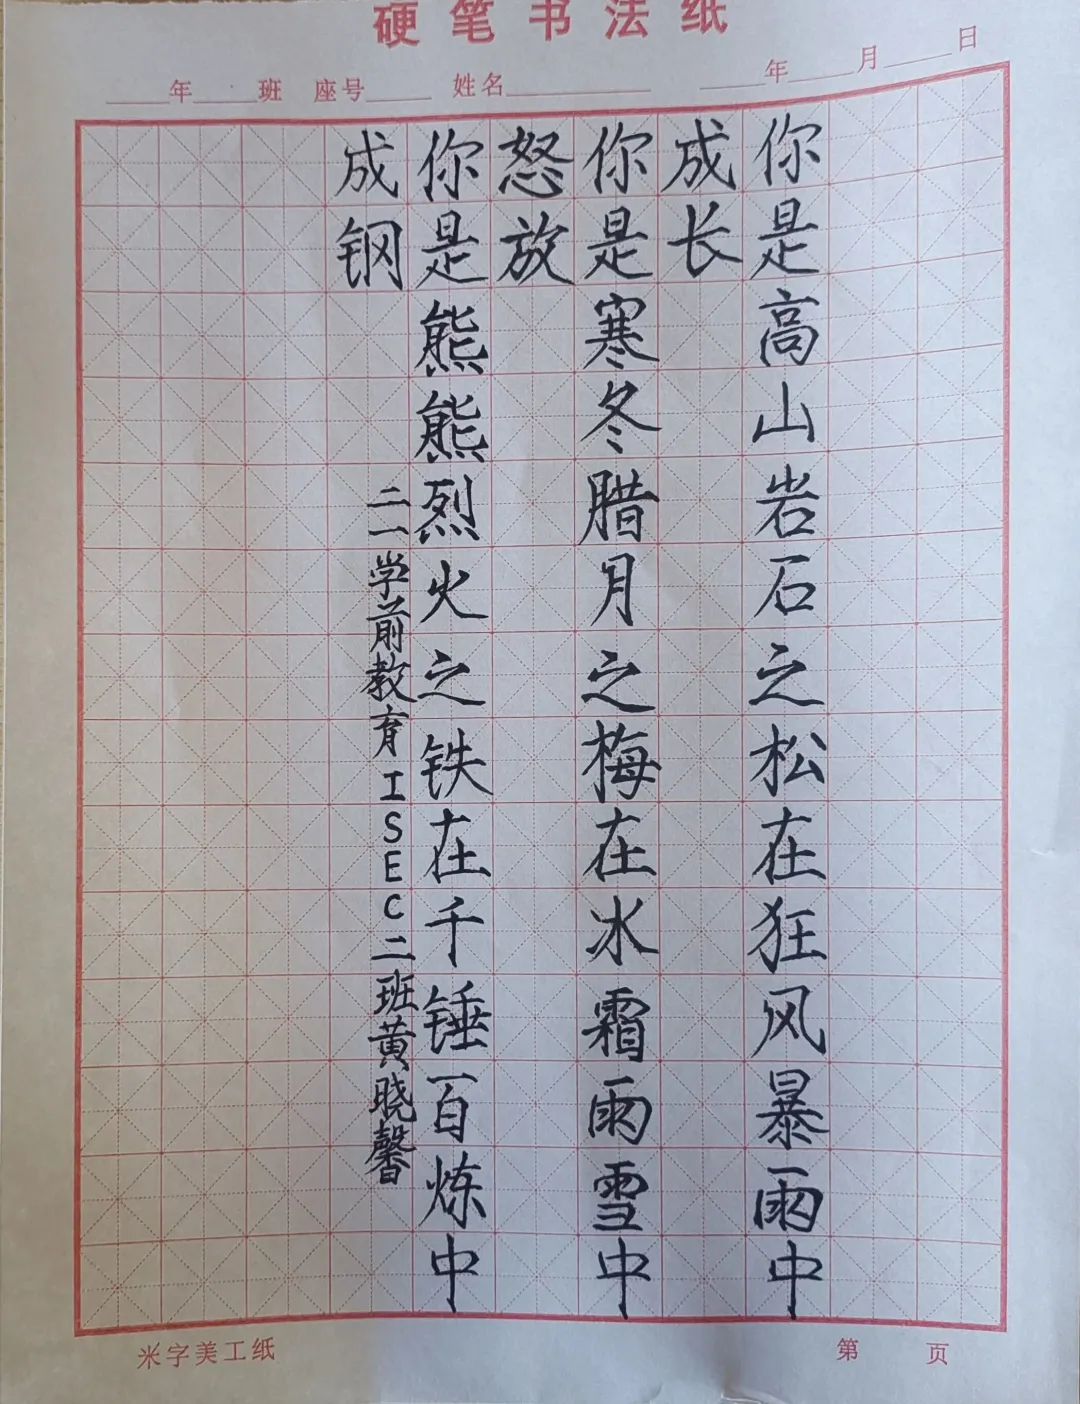 硬笔书法纸
年 班 座号 姓名 年 月 日
你是高山岩石之松在狂风暴雨中
成长
你是寒冬腊月之梅在冰霜雨雪中
怒放
你是熊熊烈火之铁在千锤百炼中
成钢
二一学前教育ISEC二班黄晓馨
米字美工纸
第 页